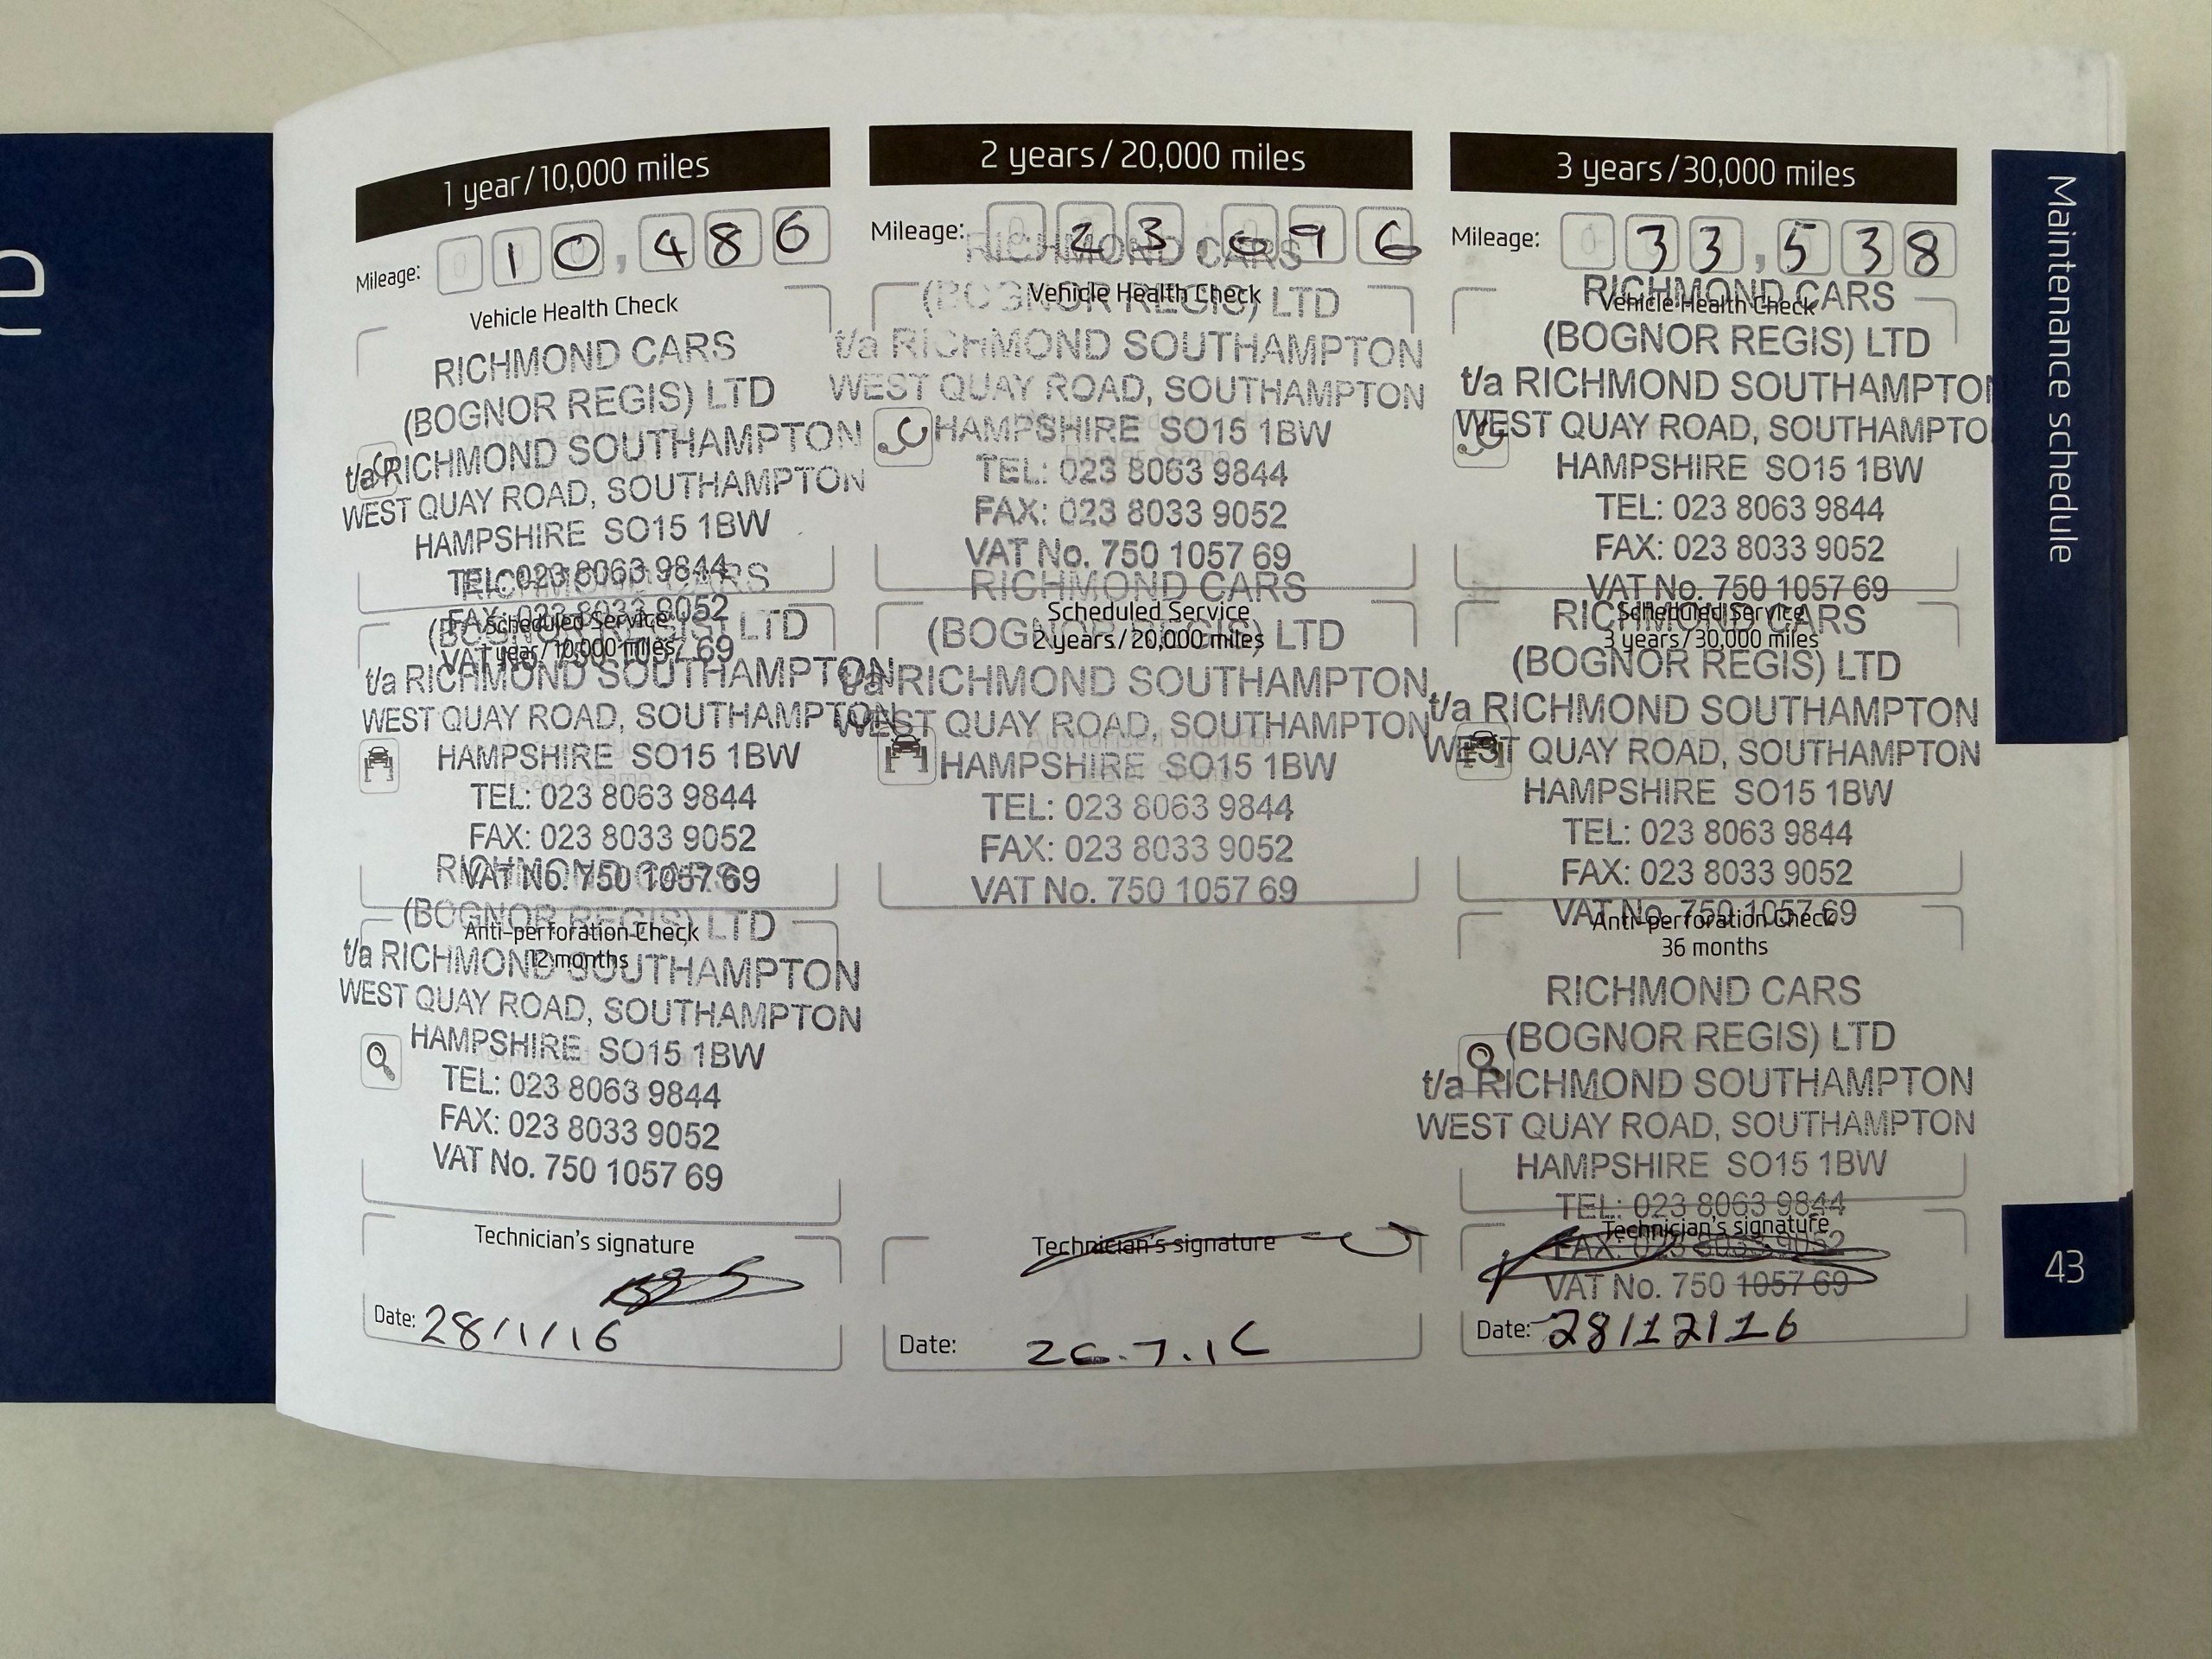 e
1 year/10,000 miles
Mileage: 10,486
Vehicle Health Check
RICHMOND CARS
(BOGNOR REGIS) LTD
t/a RICHMOND SOUTHAMPTON
WEST QUAY ROAD, SOUTHAMPTON
HAMPSHIRE SO15 1BW
TEL: 023 8063 9844
FAX: 023 8033 9052
VAT No. 750 1057 69
Scheduled Service
1 year/10,000 miles
RICHMOND CARS
(BOGNOR REGIS) LTD
t/a RICHMOND SOUTHAMPTON
WEST QUAY ROAD, SOUTHAMPTON
HAMPSHIRE SO15 1BW
Dealer Stamp
TEL: 023 8063 9844
FAX: 023 8033 9052
VAT No. 750 1057 69
Anti-perforation Check
12 months
RICHMOND CARS
(BOGNOR REGIS) LTD
t/a RICHMOND SOUTHAMPTON
WEST QUAY ROAD, SOUTHAMPTON
HAMPSHIRE SO15 1BW
TEL: 023 8063 9844
FAX: 023 8033 9052
VAT No. 750 1057 69
Technician's signature
Date: 28/1/16
2 years/20,000 miles
Mileage: 23,696
Vehicle Health Check
RICHMOND CARS
(BOGNOR REGIS) LTD
t/a RICHMOND SOUTHAMPTON
WEST QUAY ROAD, SOUTHAMPTON
HAMPSHIRE SO15 1BW
Dealer Stamp
TEL: 023 8063 9844
FAX: 023 8033 9052
VAT No. 750 1057 69
Scheduled Service
2 years/20,000 miles
RICHMOND CARS
(BOGNOR REGIS) LTD
t/a RICHMOND SOUTHAMPTON
WEST QUAY ROAD, SOUTHAMPTON
Authorised Hyundai
HAMPSHIRE SO15 1BW
TEL: 023 8063 9844
FAX: 023 8033 9052
VAT No. 750 1057 69
Technician's signature
Date: 26.7.16
3 years/30,000 miles
Mileage: 33,538
Vehicle Health Check
RICHMOND CARS
(BOGNOR REGIS) LTD
t/a RICHMOND SOUTHAMPTON
WEST QUAY ROAD, SOUTHAMPTO
HAMPSHIRE SO15 1BW
TEL: 023 8063 9844
FAX: 023 8033 9052
VAT No. 750 1057 69
Scheduled Service
3 years/30,000 miles
RICHMOND CARS
(BOGNOR REGIS) LTD
t/a RICHMOND SOUTHAMPTON
Authorised Hyundai
WEST QUAY ROAD, SOUTHAMPTON
HAMPSHIRE SO15 1BW
TEL: 023 8063 9844
FAX: 023 8033 9052
VAT No. 750 1057 69
Anti-perforation Check
36 months
RICHMOND CARS
(BOGNOR REGIS) LTD
t/a RICHMOND SOUTHAMPTON
WEST QUAY ROAD, SOUTHAMPTON
HAMPSHIRE SO15 1BW
TEL: 023 8063 9844
FAX: 023 8033 9052
VAT No. 750 1057 69
Technician's signature
Date: 28/12/16
Maintenance schedule
43